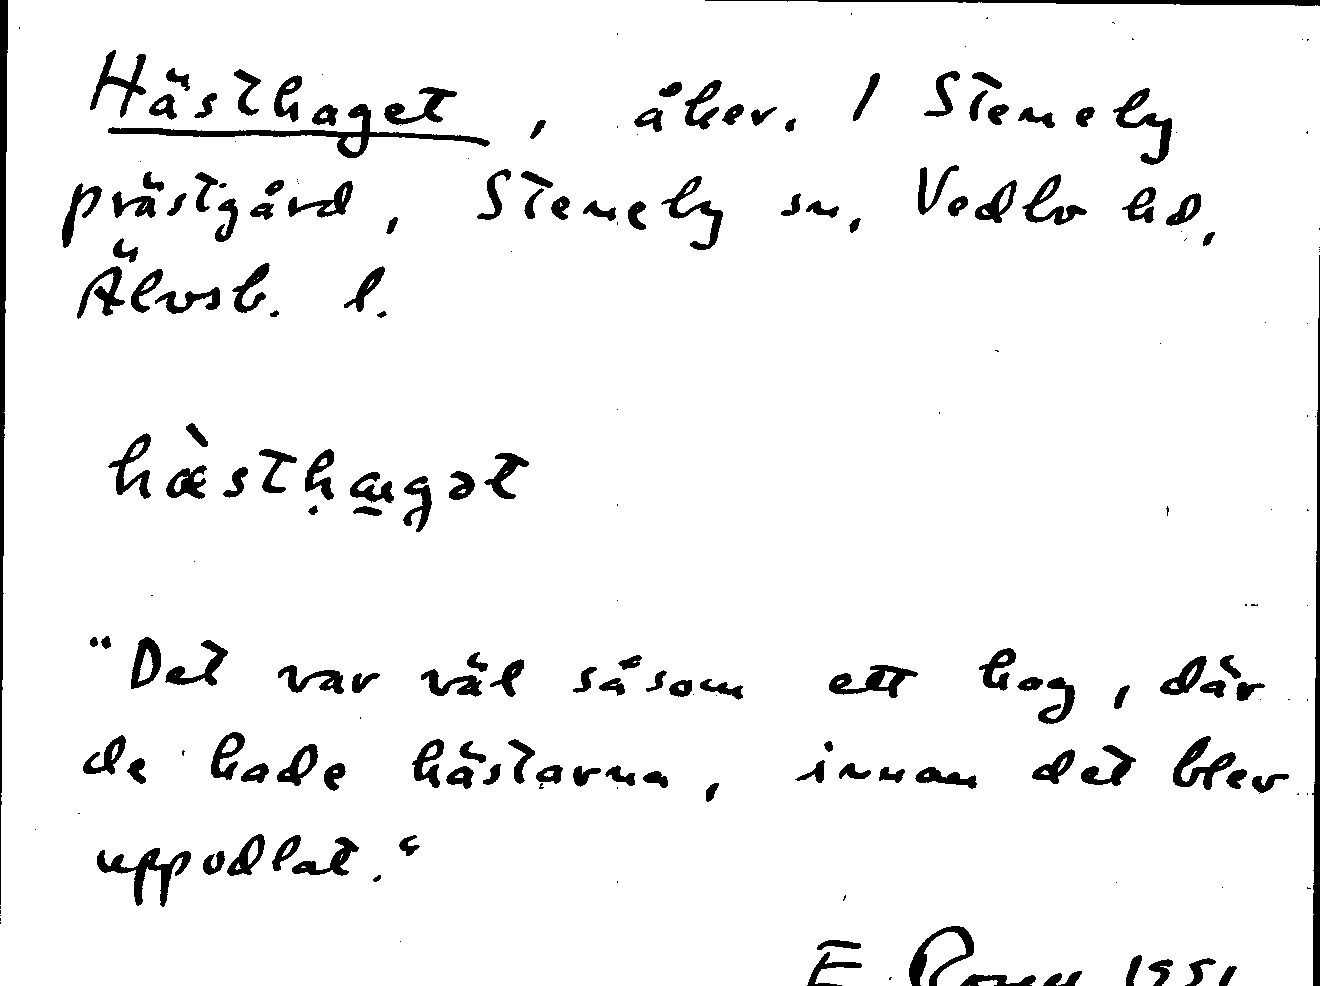 Hästhaget, åker. 1 Steneby
prästgård, Steneby sn, Vedbo hd,
Älvsb. l.
hæ̀stḥa̱gət
"Det var väl såsom ett hag, där
de hade hästarna, innan det blev
uppodlat."
E 1951